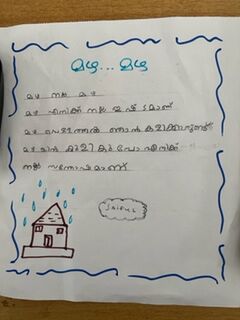 മഴ... മഴ
മഴ നല്ല മഴ
മഴ എനിക്ക് നല്ല ഇഷ്ടമാണ്
മഴ പെയ്താൽ ഞാൻ കളിക്കാറുണ്ട്
മഴയിൽ കുളിക്കുമ്പോ എനിക്ക്
നല്ല സന്തോഷമാണ്